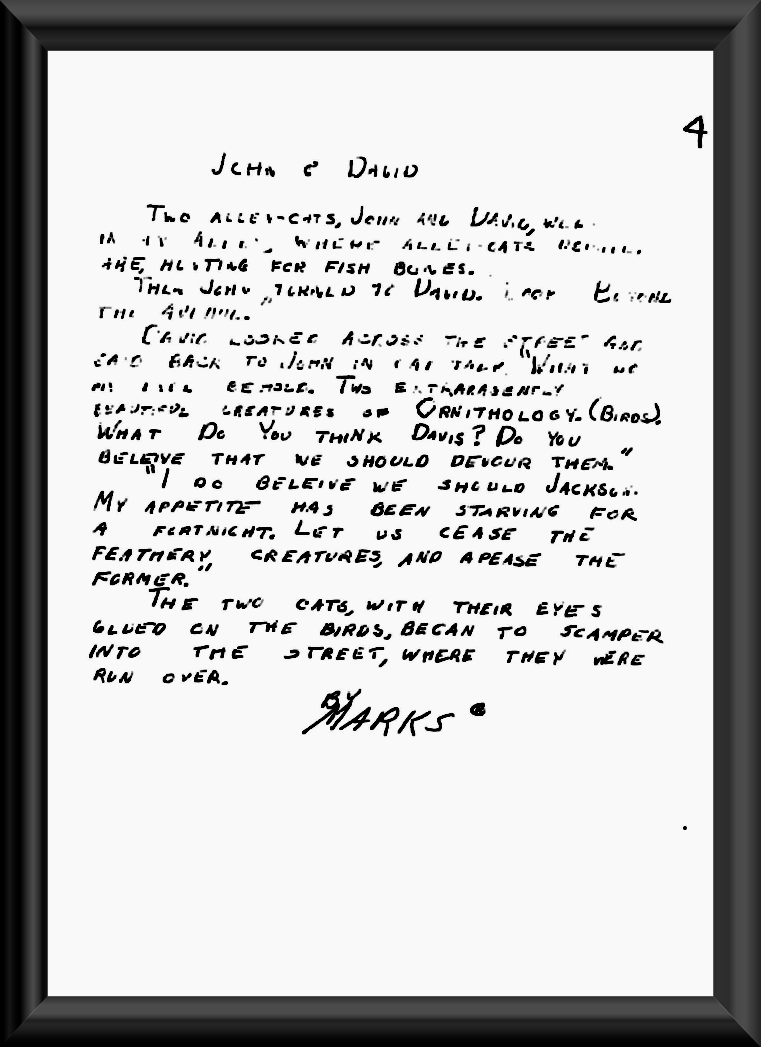 4
JOHN & DAVID
TWO ALLEY-CATS, JOHN AND DAVID,
IN ALLEY, WHERE ALLEY-CATS
ARE, HUNTING FOR FISH BONES.
THEN JOHN TO DAVID. BEYOND
THE AVENUE.
DAVID LOOKED ACROSS THE STREET AND
SAID BACK TO JOHN IN CAT TALK, "WHAT DO
MY EYES BEHOLD. TWO
BEAUTIFUL CREATURES OF ORNITHOLOGY. (BIRDS).
WHAT DO YOU THINK DAVIS? DO YOU
BELEIVE THAT WE SHOULD DEVOUR THEM."
"I DO BELEIVE WE SHOULD JACKSON.
MY APPETITE HAS BEEN STARVING FOR
A FORTNIGHT. LET US CEASE THE
FEATHERY CREATURES, AND APEASE THE
FORMER."
THE TWO CATS, WITH THEIR EYES
GLUED ON THE BIRDS, BEGAN TO SCAMPER
INTO THE STREET, WHERE THEY WERE
RUN OVER.
BY
MARKS